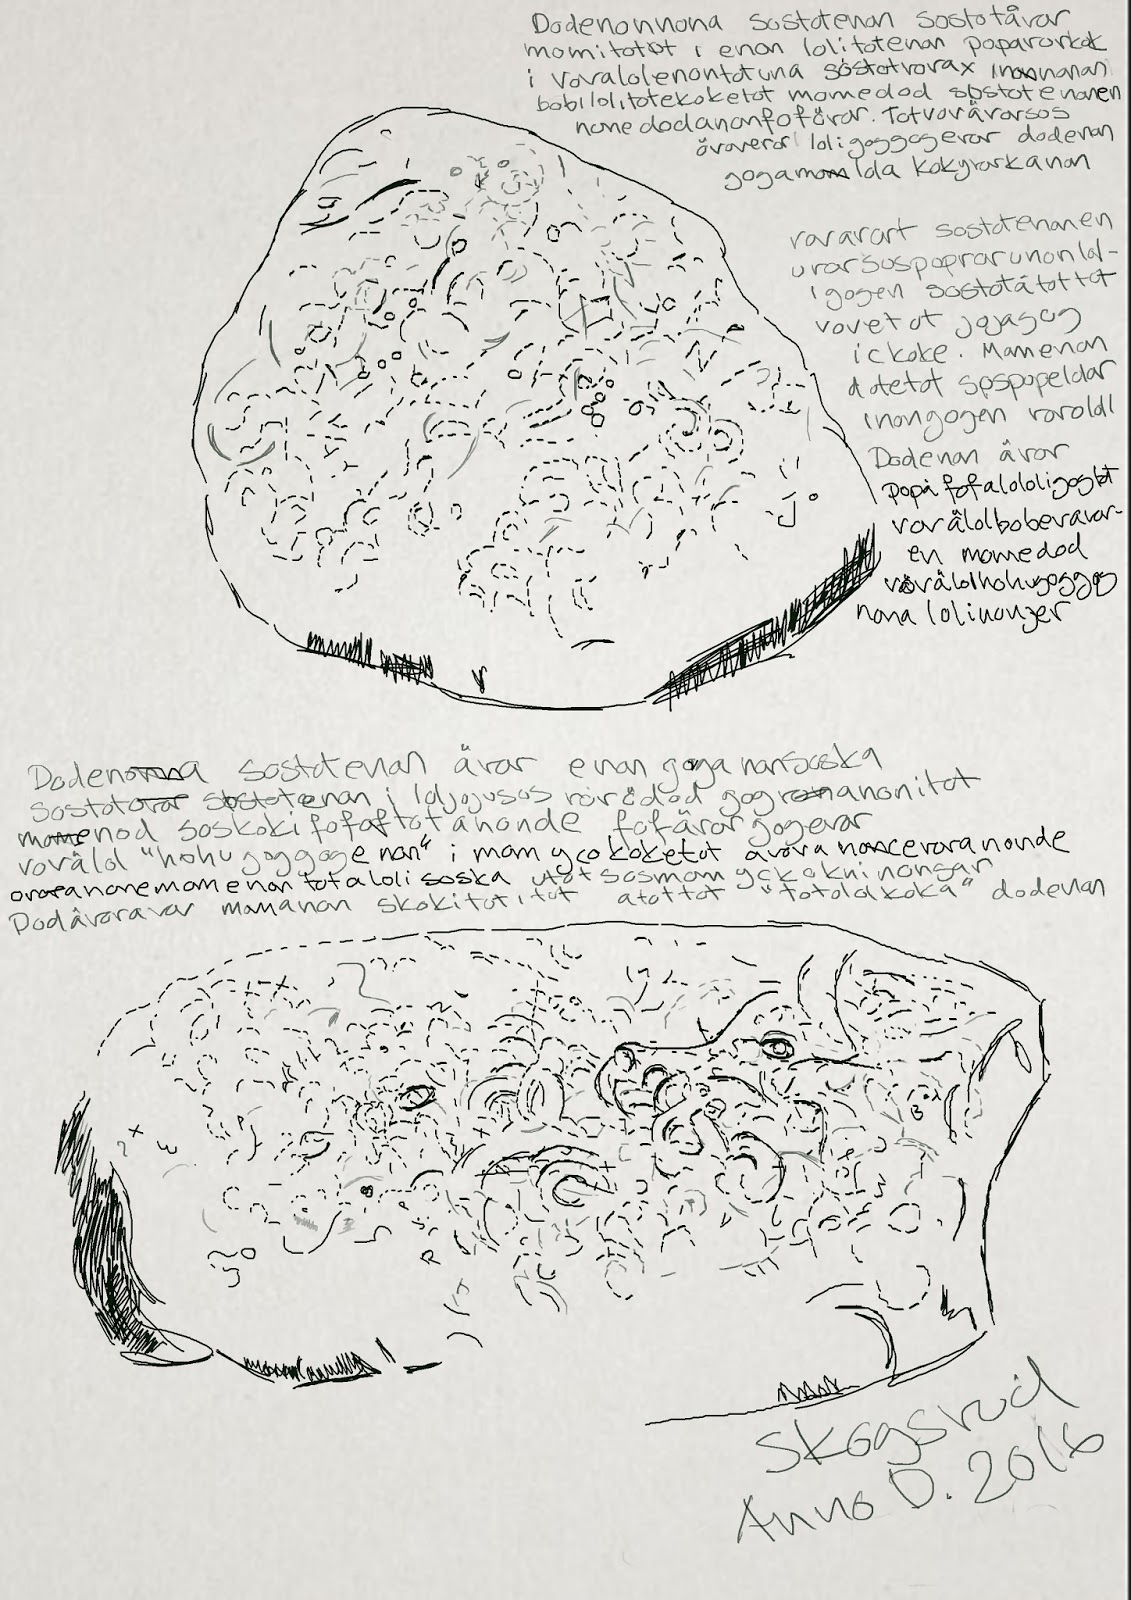 Dodenonnona sostotenon sostotåror
momitotot i enon lolitotenon poparorkok
i vovalolenontotuna sostotrorax inonnonan
bobilolitotekoketot momedod sostotenonen
nonedodanonfoföror. Totvovärorsos
övoveror loligoggogeror dodenon
gogamomlda kokyrorkanon
rorarort sostotenonen
urorsospoprorunonlol-
igogen sostotåtottot
vovetot jojagog
ickoke. Momenon
dodetot spospopeldar
inongogen roroldl
Dodenon äror
popå fofalololigogtot
vovälolbobevarar-
en momedod
vovälolhohugoggog
nona lolinonjer
Dodenonna sostotenon äror enon goganonsoska
sostotoror sostotenon i loljojusos rorödod gogroranonitot
momenod soskokifofaftotanonde fofärorgogeror
roväld "hohugoggogenon" i momycokoketot avovanonceroranonde
oroanonemomenontotalolisoska utotsosmomyckokninongar
Dodåvovaror momanon skokitotitot atottot "totolokoka" dodenon
Skogsrud
Anno D. 2016